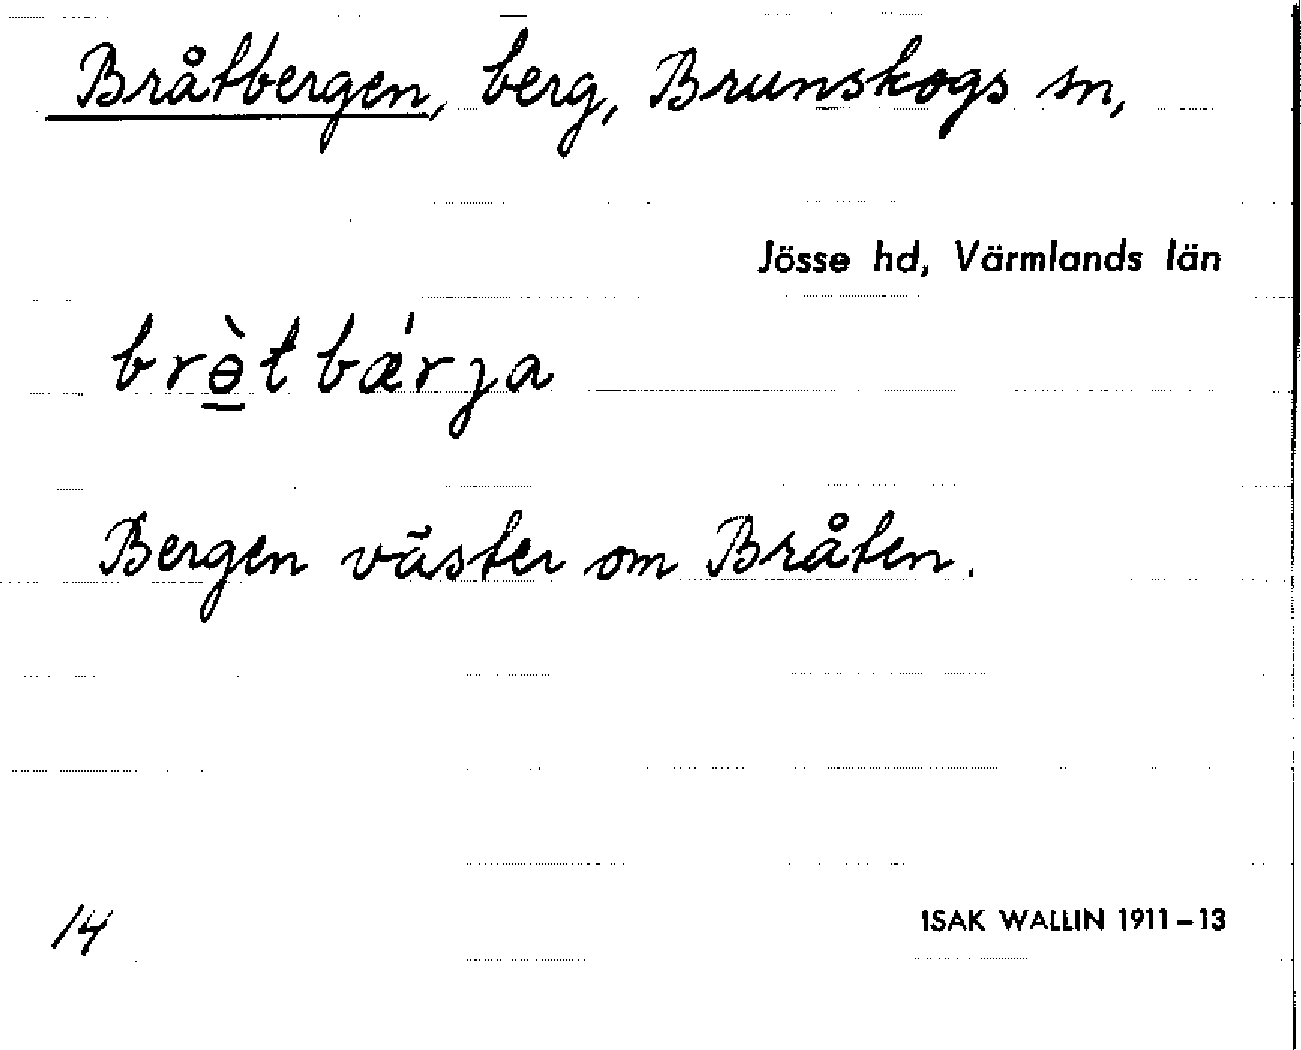 Bråtbergen, berg, Brunskogs sn,
Jösse hd, Värmlands län
brɵ̠̀tbǽrja
Bergen väster om Bråten.
14
ISAK WALLIN 1911–13